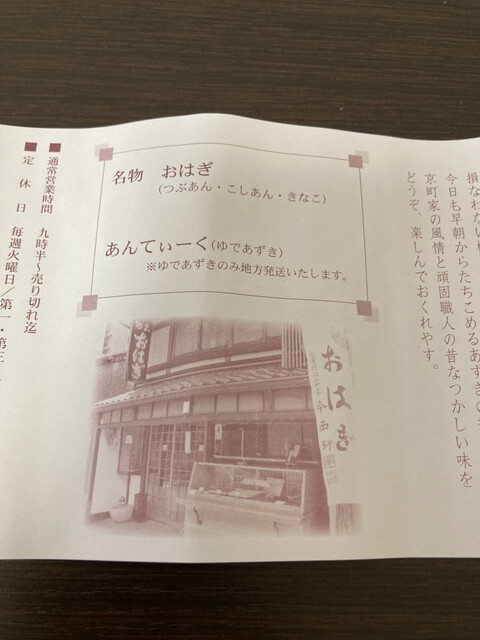 今日も早朝からたちこめるあずきの
京町家の風情と頑固職人の昔なつかしい味を
どうぞ、楽しんでおくれやす。
名物 おはぎ
(つぶあん・こしあん・きなこ)
あんてぃーく(ゆであずき)
※ゆであずきのみ地方発送いたします。
おはぎ
おはぎ
■通常営業時間 九時半〜売り切れ迄
■定休日 毎週火曜日／第一・第三